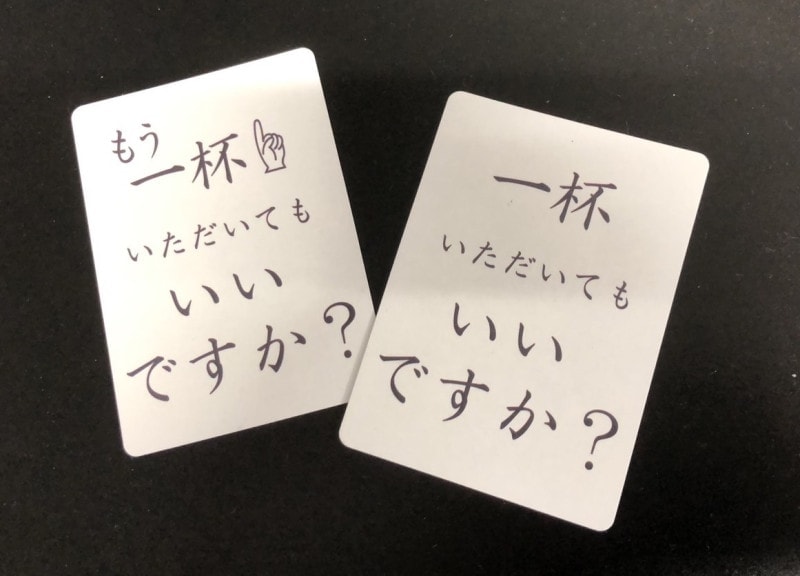 もう
一杯
いただいても
いい
ですか?
一杯
いただいても
いい
ですか?